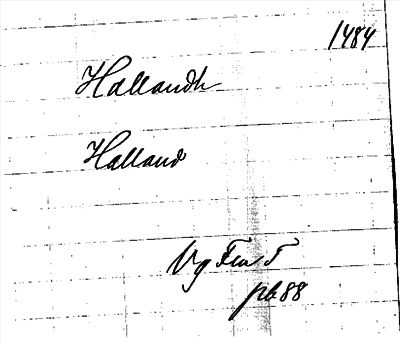 1484
Hallandh
Halland
Vg Fru T
pb 88